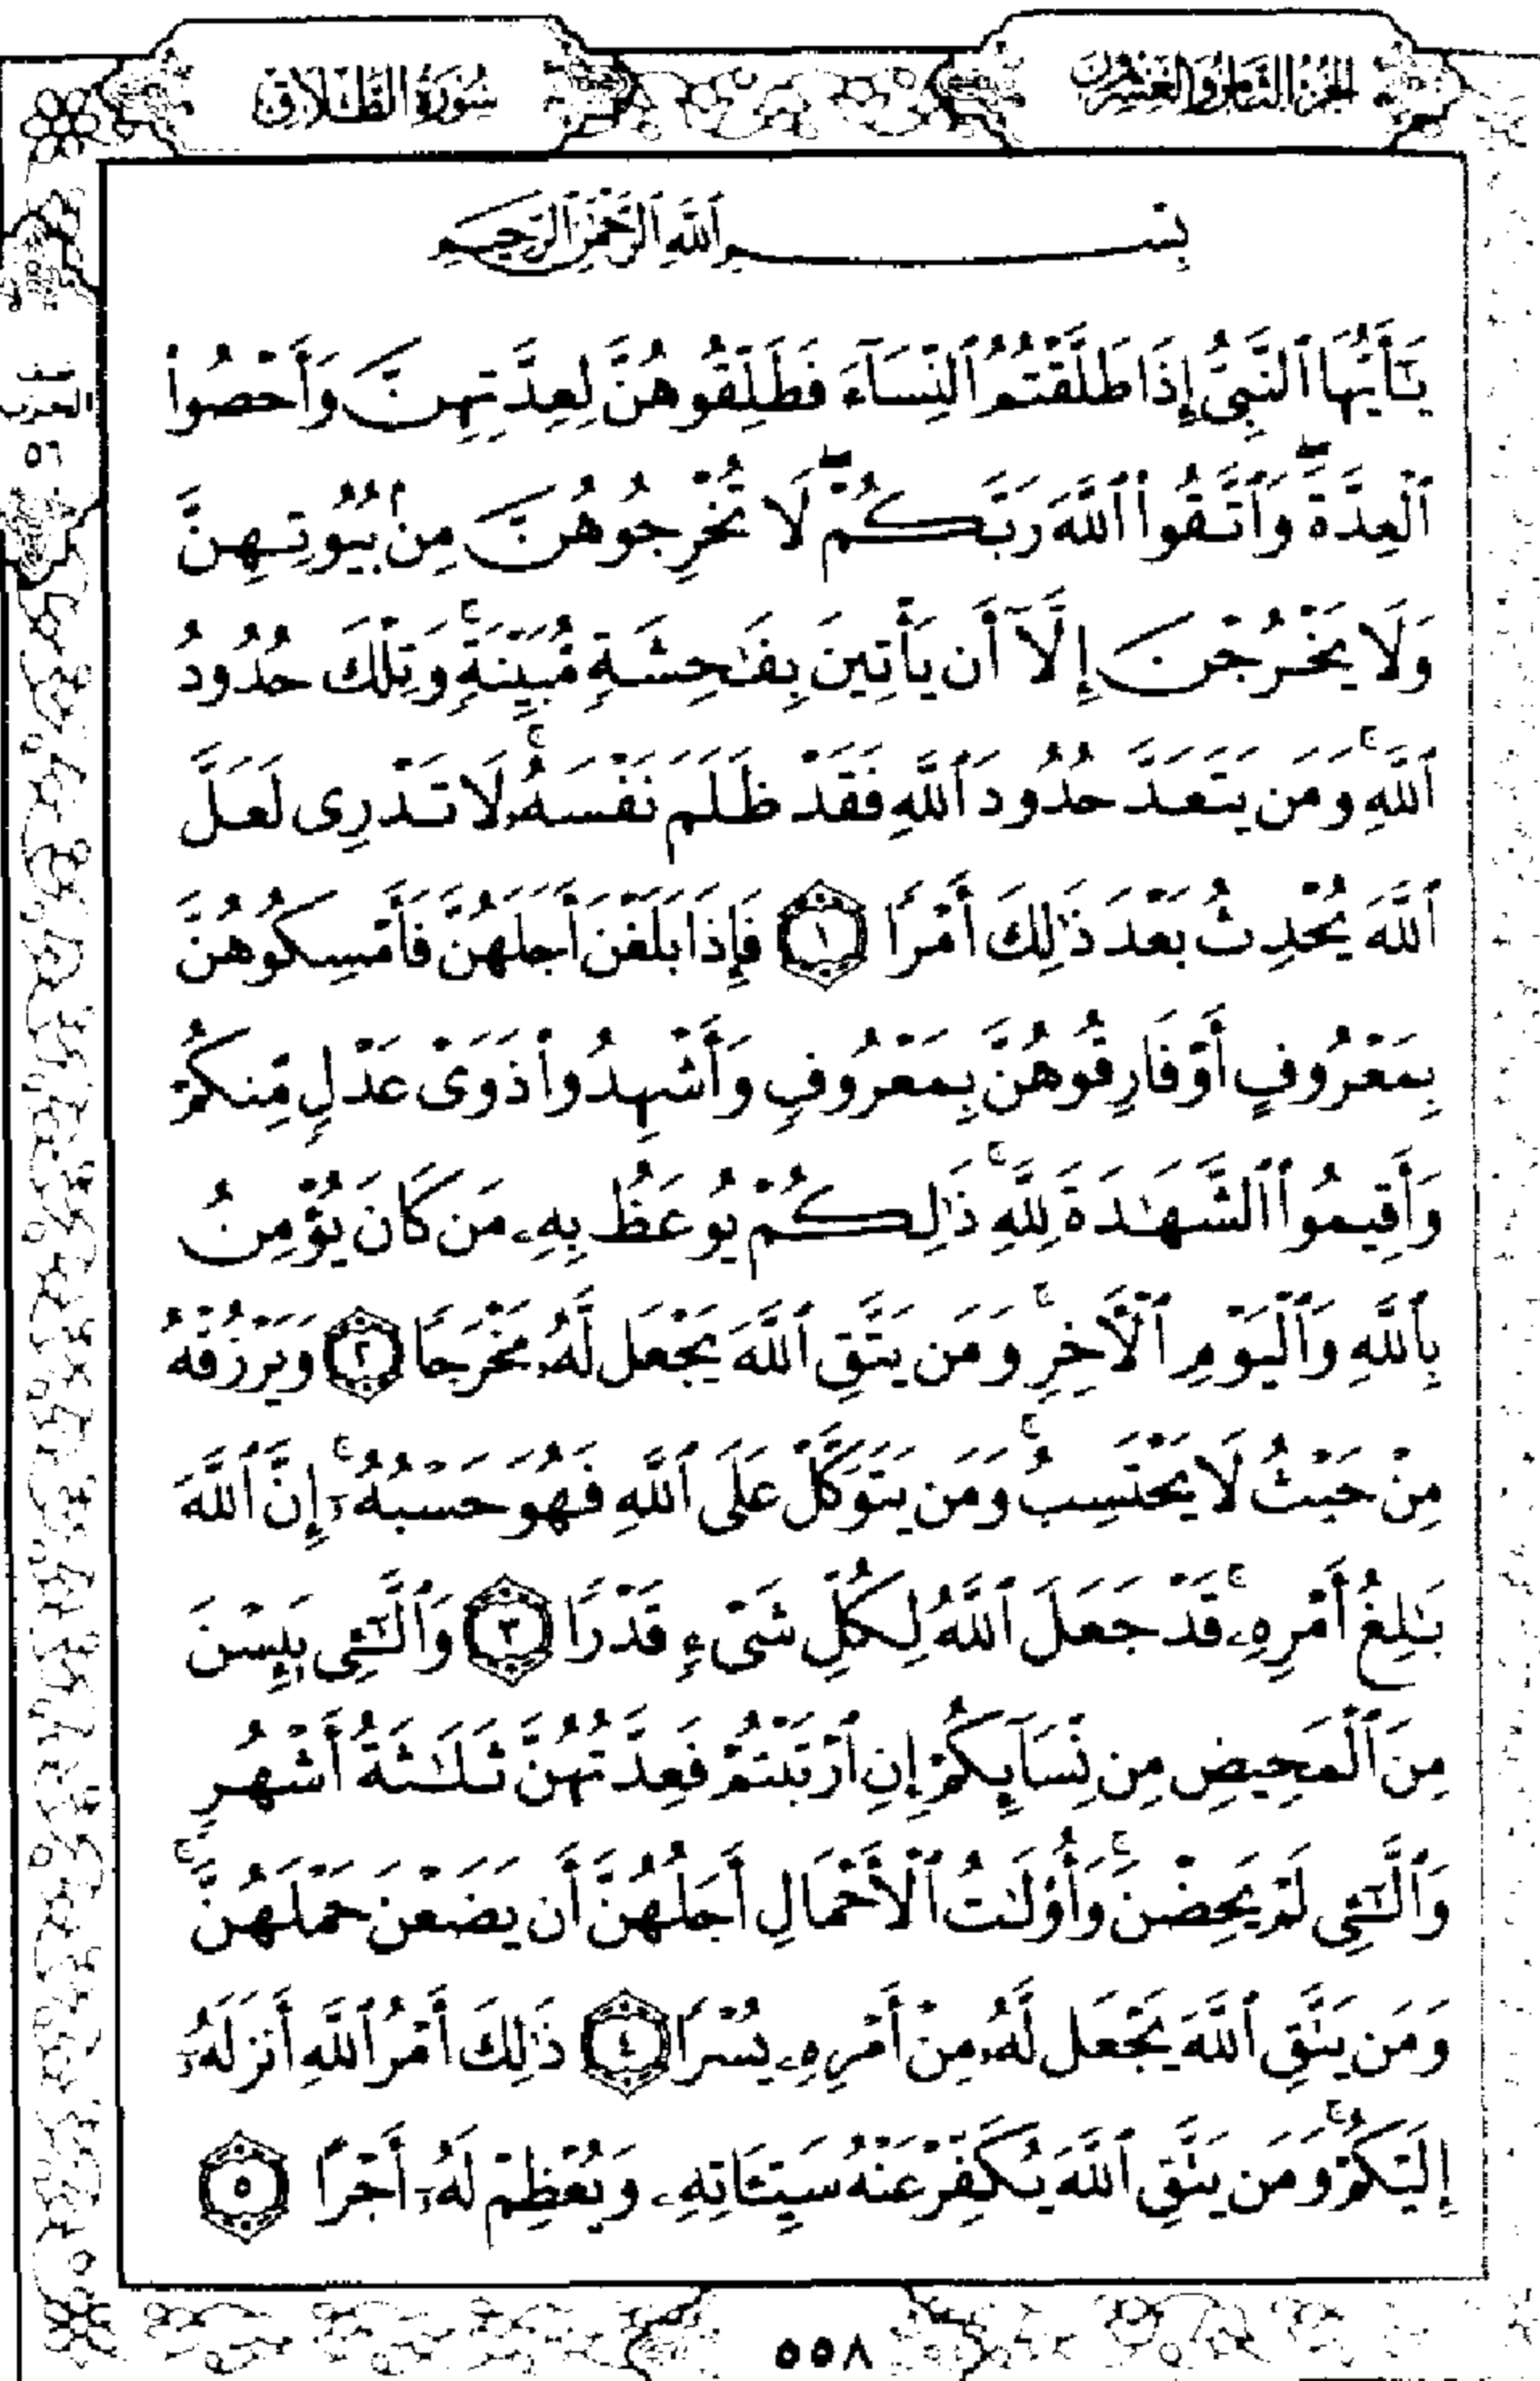 الجزء الثامن والعشرون
سورة الطلاق
بِسْمِ ٱللَّهِ ٱلرَّحْمَٰنِ ٱلرَّحِيمِ
يَٰٓأَيُّهَا ٱلنَّبِىُّ إِذَا طَلَّقْتُمُ ٱلنِّسَآءَ فَطَلِّقُوهُنَّ لِعِدَّتِهِنَّ وَأَحْصُوا۟
ٱلْعِدَّةَ ۖ وَٱتَّقُوا۟ ٱللَّهَ رَبَّكُمْ ۖ لَا تُخْرِجُوهُنَّ مِنۢ بُيُوتِهِنَّ
وَلَا يَخْرُجْنَ إِلَّآ أَن يَأْتِينَ بِفَٰحِشَةٍ مُّبَيِّنَةٍ ۚ وَتِلْكَ حُدُودُ
ٱللَّهِ ۚ وَمَن يَتَعَدَّ حُدُودَ ٱللَّهِ فَقَدْ ظَلَمَ نَفْسَهُۥ ۚ لَا تَدْرِى لَعَلَّ
ٱللَّهَ يُحْدِثُ بَعْدَ ذَٰلِكَ أَمْرًا ١ فَإِذَا بَلَغْنَ أَجَلَهُنَّ فَأَمْسِكُوهُنَّ
بِمَعْرُوفٍ أَوْ فَارِقُوهُنَّ بِمَعْرُوفٍ وَأَشْهِدُوا۟ ذَوَىْ عَدْلٍ مِّنكُمْ
وَأَقِيمُوا۟ ٱلشَّهَٰدَةَ لِلَّهِ ۚ ذَٰلِكُمْ يُوعَظُ بِهِۦ مَن كَانَ يُؤْمِنُ
بِٱللَّهِ وَٱلْيَوْمِ ٱلْءَاخِرِ ۚ وَمَن يَتَّقِ ٱللَّهَ يَجْعَل لَّهُۥ مَخْرَجًا ٢ وَيَرْزُقْهُ
مِنْ حَيْثُ لَا يَحْتَسِبُ ۚ وَمَن يَتَوَكَّلْ عَلَى ٱللَّهِ فَهُوَ حَسْبُهُۥٓ ۚ إِنَّ ٱللَّهَ
بَٰلِغُ أَمْرِهِۦ ۚ قَدْ جَعَلَ ٱللَّهُ لِكُلِّ شَىْءٍ قَدْرًا ٣ وَٱلَّٰٓـِٔى يَئِسْنَ
مِنَ ٱلْمَحِيضِ مِن نِّسَآئِكُمْ إِنِ ٱرْتَبْتُمْ فَعِدَّتُهُنَّ ثَلَٰثَةُ أَشْهُرٍ
وَٱلَّٰٓـِٔى لَمْ يَحِضْنَ ۚ وَأُو۟لَٰتُ ٱلْأَحْمَالِ أَجَلُهُنَّ أَن يَضَعْنَ حَمْلَهُنَّ ۚ
وَمَن يَتَّقِ ٱللَّهَ يَجْعَل لَّهُۥ مِنْ أَمْرِهِۦ يُسْرًا ٤ ذَٰلِكَ أَمْرُ ٱللَّهِ أَنزَلَهُۥٓ
إِلَيْكُمْ ۚ وَمَن يَتَّقِ ٱللَّهَ يُكَفِّرْ عَنْهُ سَيِّـَٔاتِهِۦ وَيُعْظِمْ لَهُۥٓ أَجْرًا ٥
الحزب
٥٦
٥٥٨